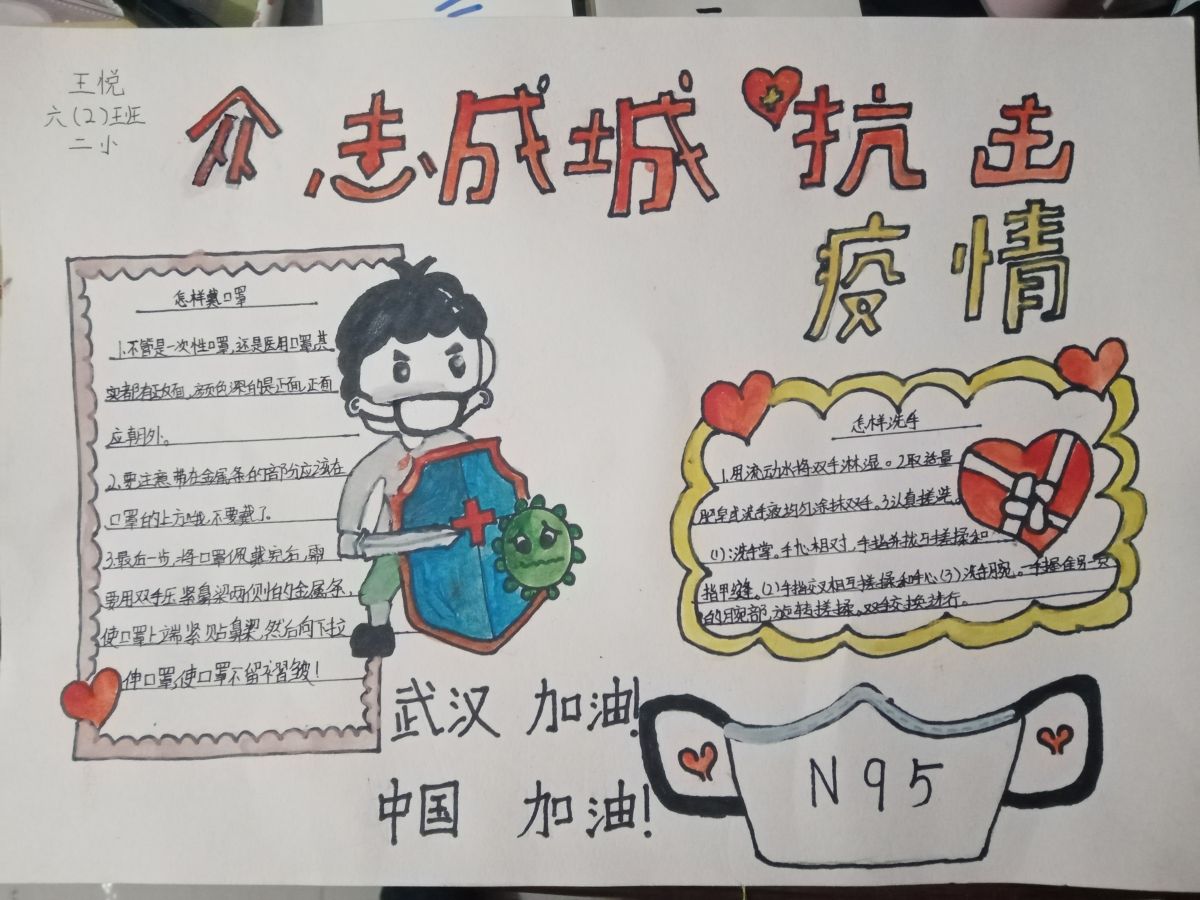 王悦
六(2)班
二小
众志成城抗击
疫情
怎样戴口罩
1.不管是一次性口罩,还是医用口罩,其
实都有正反面,颜色深的是正面,正面
应朝外。
2.要注意带在金属条的部分应该在
口罩的上方哦,不要戴了。
3.最后一步,将口罩佩戴完后,需
要用双手压紧鼻梁两侧的金属条,
使口罩上端紧贴鼻梁,然后向下拉
伸口罩,使口罩不留褶皱!
怎样洗手
1.用流动水将双手淋湿。2取适量
肥皂或洗手液均匀涂抹双手。3认真搓洗。
(1):洗手掌,手心相对,手指并拢互搓揉和
指甲缝。(2)手指交叉相互搓揉和手心(3)洗手腕。一手握住另一只
的腕部,旋转搓揉,双手交换进行。
武汉 加油!
中国 加油!
N95